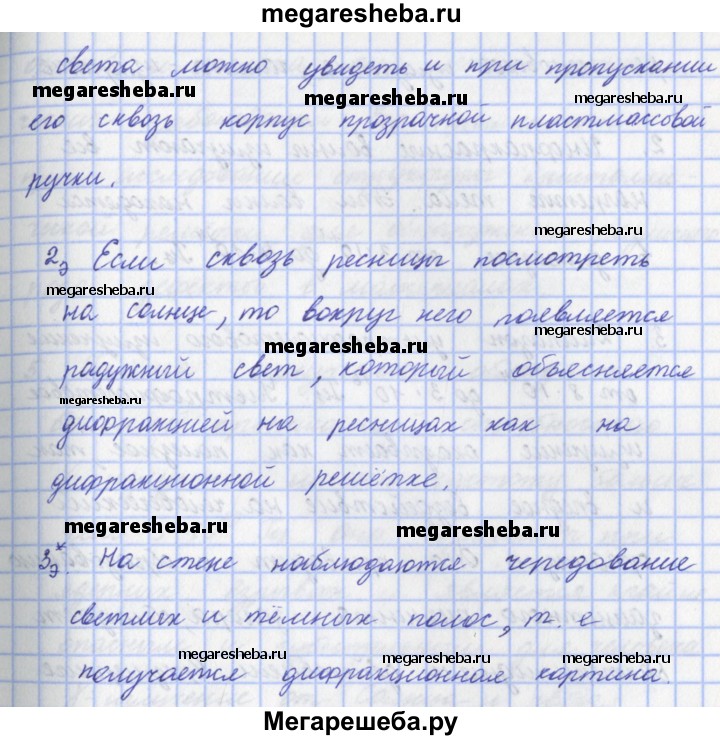 megaresheba.ru
света можно увидеть и при пропускании
megaresheba.ru megaresheba.ru megaresheba.ru
его сквозь корпус прозрачной пластмассовой
ручки.
megaresheba.ru
2э Если сквозь ресницы посмотреть
megaresheba.ru
на солнце, то вокруг него появляется
megaresheba.ru
megaresheba.ru
радужный свет, который объясняется
megaresheba.ru
дифракцией на ресницах как на
дифракционной решётке.
megaresheba.ru megaresheba.ru
3э*. На стене наблюдаются чередование
светлых и тёмных полос, т. е
megaresheba.ru megaresheba.ru megaresheba.ru
получается дифракционная картина.
Мегарешеба.ру